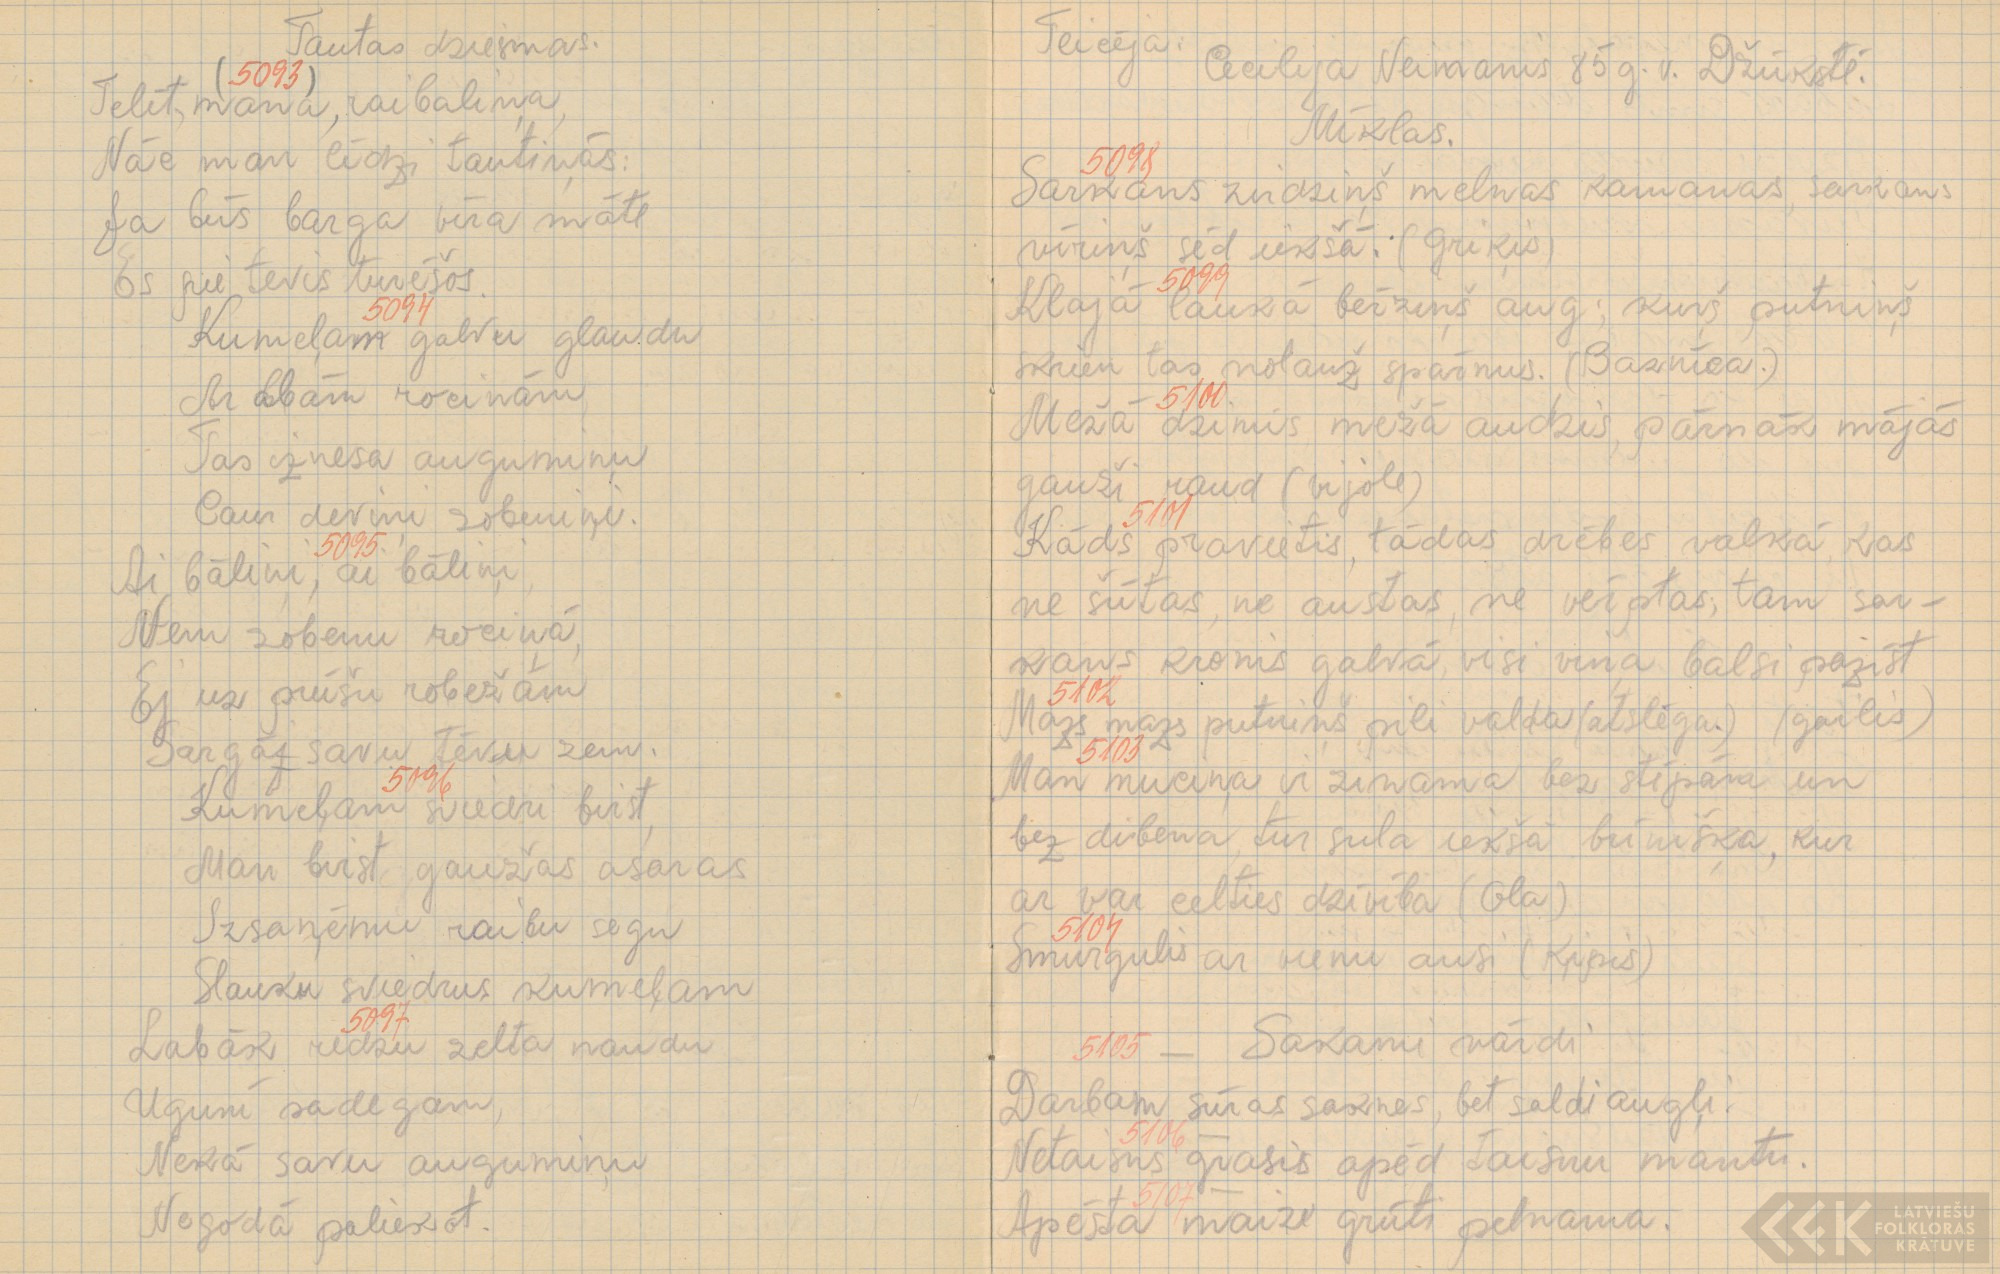 Tautas dziesmas.
(5093)
Telīt, mana, raibaliņa,
Nāc man līdzi tautiņās:
Ja būs barga vīra māte
Es pie tevis turēšos.
5094
Kumeļam galvu glaudu
Ar abām rociņām
Tas iznesa augumiņu
Caur deviņi zobeniņi.
5095
Ai bāliņi, ai bāliņi,
Ņem zobenu rociņā,
Ej uz prūšu robežām
Sargāj savu tēvu zem.
5096
Kumeļam sviedri birst,
Man birst gaužas asaras
Izsaņēmu raibu segu
Slauku sviedrus kumeļam
5097
Labāk redzu zelta naudu
Ugunī sadegam,
Nekā savu augumiņu
Negodā paliekot.
Teicēja:
Cecilija Neimanis 85 g. v. Džūkstē.
Mīklas.
5098
Sarkans zirdziņš melnas kamanas, sarkans
vīriņš sēd iekšā. (Griķis)
5099
Klajā laukā bērziņš aug; kurš putniņš
skrien tas nolauž spārnus. (Baznīca.)
5100
Mežā dzimis mežā audzis, pārnāk mājās
gauži raud (vijole)
5101
Kāds pravietis, tādas drēbes valkā kas
ne šūtas, ne austas, ne vērptas, tam sar-
kans kronis galvā, visi viņa balsi pazīst
5102
Mazs mazs putniņš pili valda (atslēga.) (gailis)
5103
Man muciņa ir zināma bez stīpām un
bez dibena, tur sula iekšā brīnišķa, kur
ar var celties dzīvība (Ola)
5104
Smurgulis ar vienu ausi (Ķipis)
5105 — Sakami vārdi
Darbam sūras saknes, bet saldi augļi.
5106
Netaisns grasis apēd taisnu mantu.
5107
Apēsta maize grūti pelnama.
LATVIEŠU
FOLKLORAS
KRĀTUVE